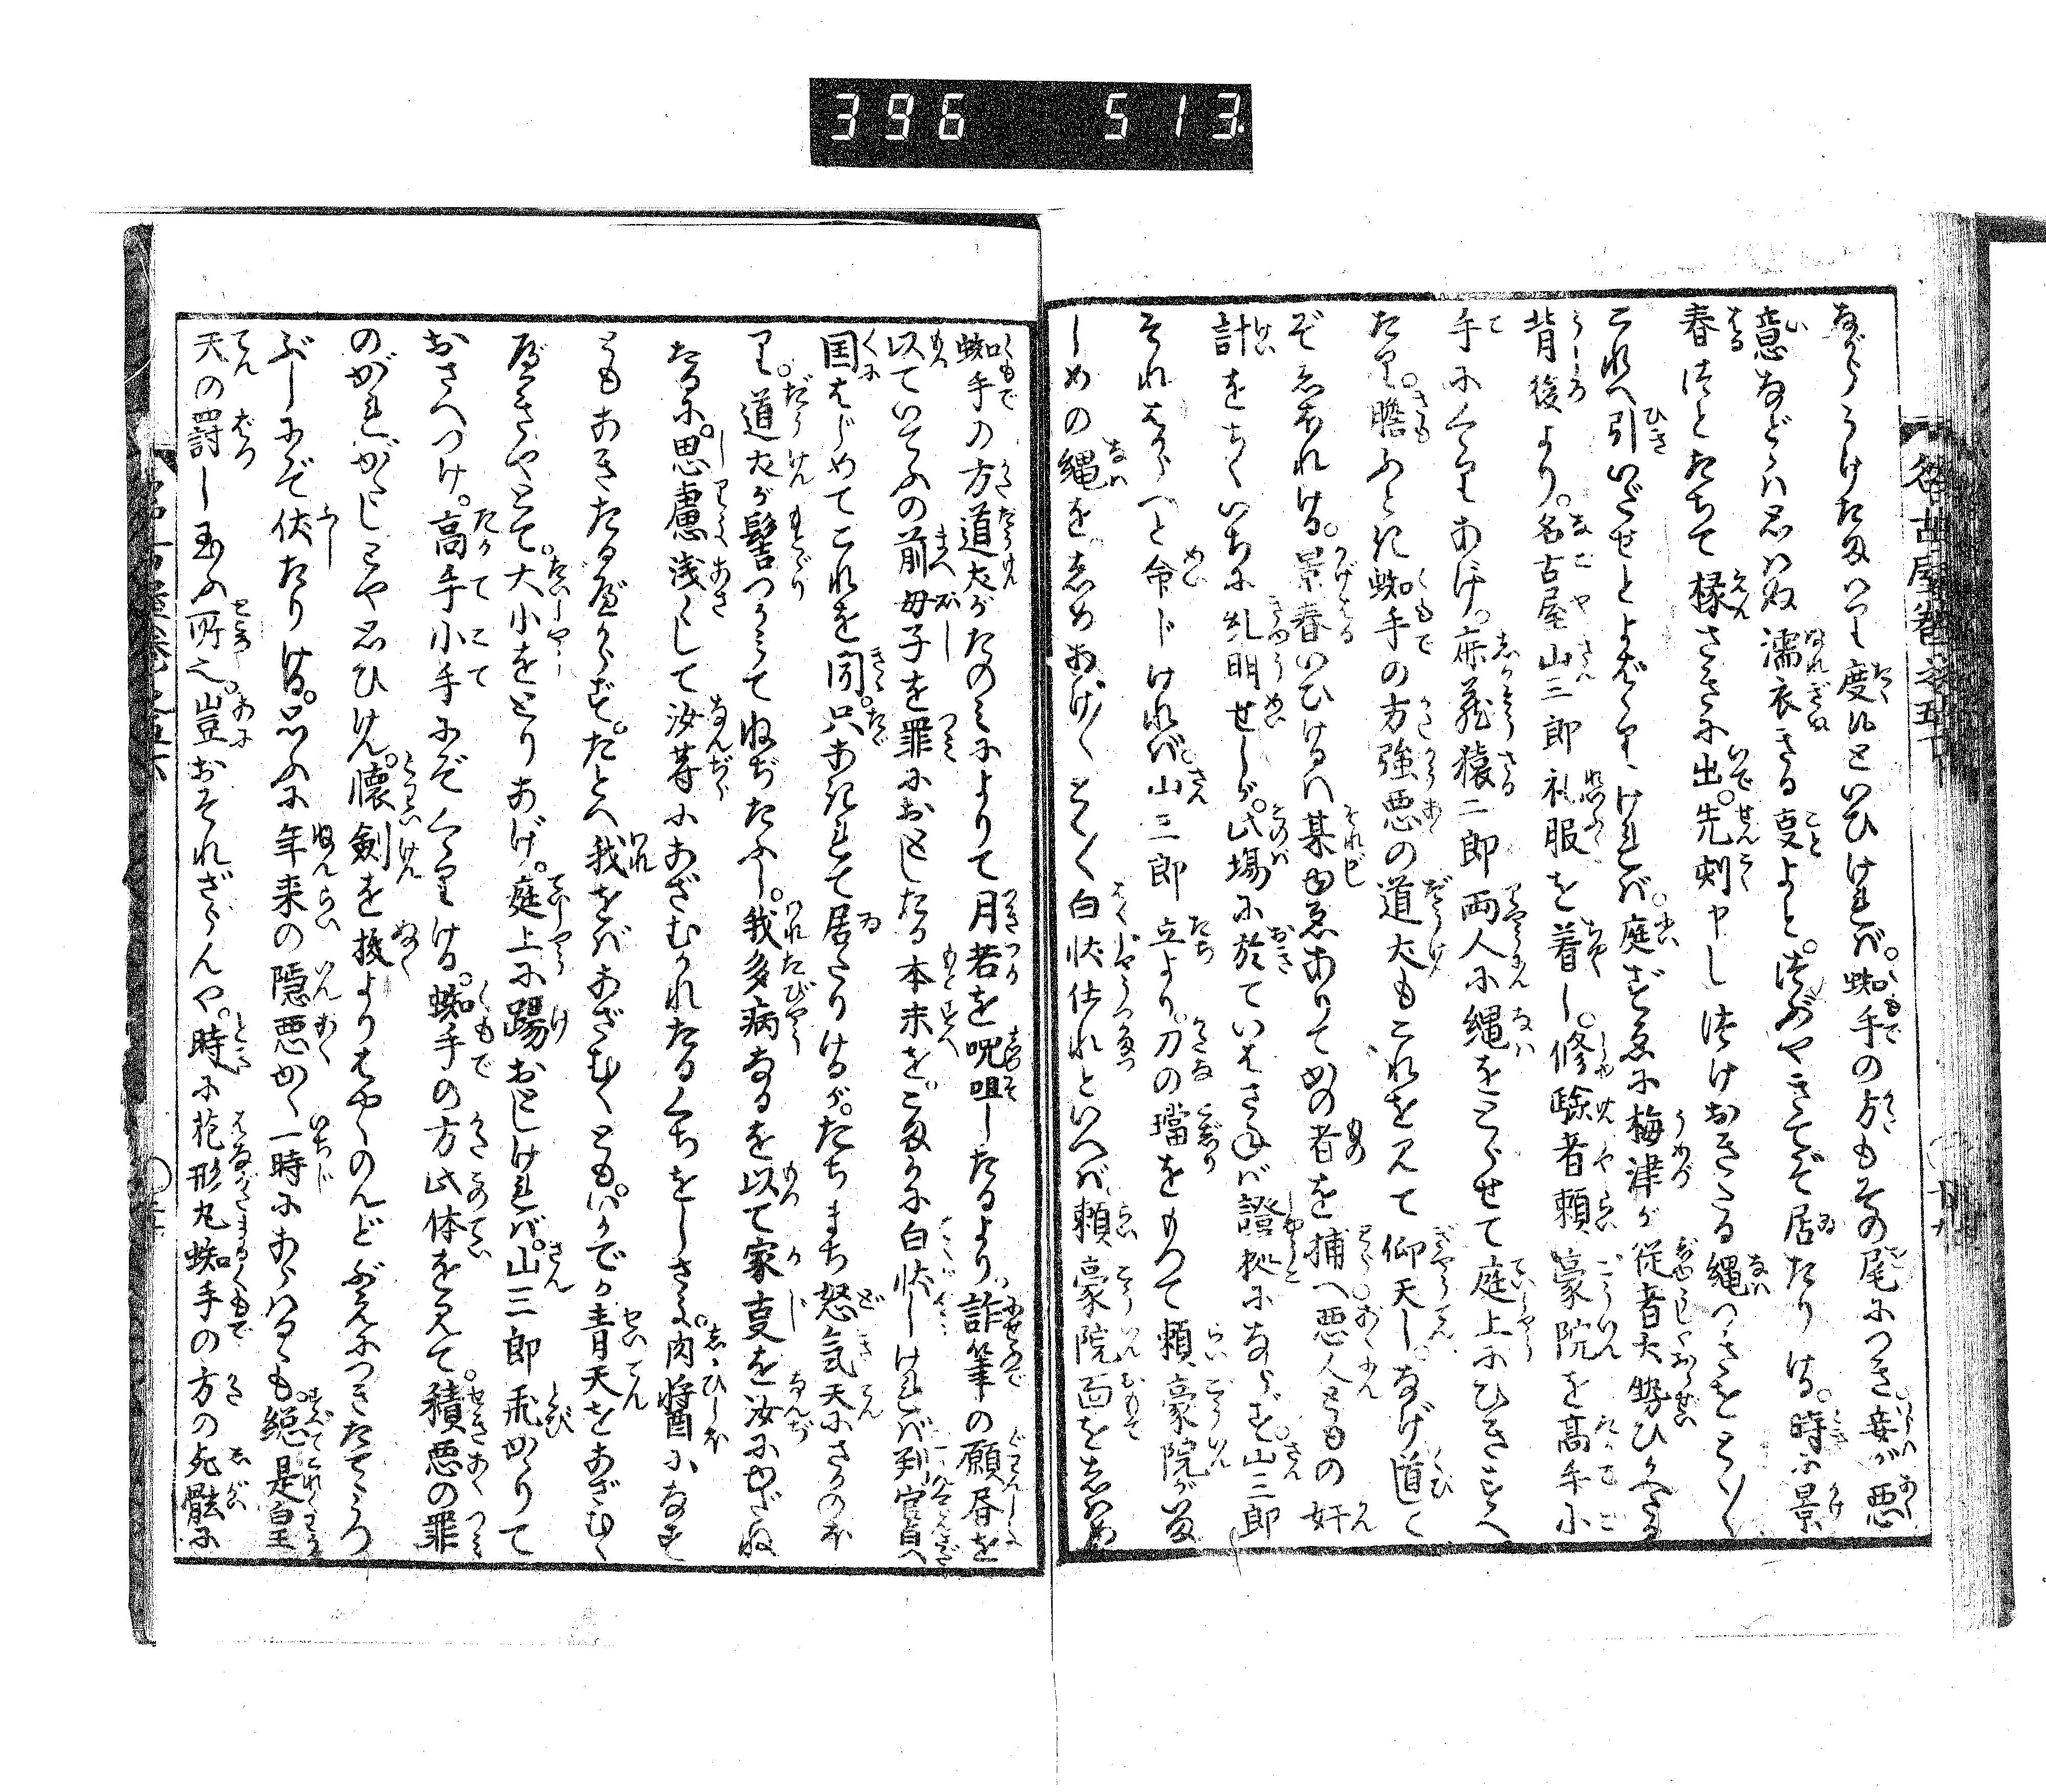 396 513
ながらうけたまはり度候といひければ。蜘手の方もその尾につき。妾が悪
意などゝは思はぬ濡衣きる事よと。つぶやきてぞ居たりける。時に景
春つとたちて椽さきに出。先刻申し付けおきたる縄つきをとく〳〵
これへ引いだせとよばゝりければ。庭ずゑに梅津が従者大勢ひかへたる
背後より。名古屋山三郎礼服を着し。修験者頼豪院を高手小
手にくゝりあげ。藻猿二郎両人に縄をとらせて庭上にひきすへ
たり。膽ふとき蜘手の方強悪の道犬もこれを見て仰天し。なげ首
ぞしたりける。景春いひけるは某ゆゑありてかの者を捕へ悪人どもの奸
計をちくいちに糺明せしが。此場に於ていはさねば證拠にならず山三郎
それはからへと命じければ。山三郎立より。刀の璫をもつて頼豪院がいま
しめの縄を。しめあげ〳〵とく〳〵白状仕れといへば。頼豪院面をしかめ
蜘手の方道犬がたのみによりて月若を呪咀したるより。詐筆の願書を
以ていてふの前母子を罪におとしたる本末を。こまかに白状しければ判官貞
国はじめてこれを聞。只あきれて居たりけるが。たちまち怒気天にさかのぼ
り。道犬が髻つかみて ねぢたふし。我多病なるを以て家事を汝にゆだね
たるに。思慮浅くして汝等にあざむかれたるくちをしさよ。肉醤になす
ともあきたるべからず。たとへ我をばあざむくとも。いかでか青天をあざむく
べきやとて。大小をとりあげ。庭上に踢おとしければ。山三郎飛かゝりて
おさへつけ。高手小手にぞくゝりける。蜘手の方此体を見て。積悪の罪
のがれがたしとや思ひけん。懐剣を抜よりはやくのんどぶえにつきたてうつ
ぶしにぞ伏たりける。思ふに年来の隠悪かく一時にあらはるゝも。総是皇
天の罰し玉ふ所也。豈おそれざらんや。時に花形丸蜘手の方の死骸に